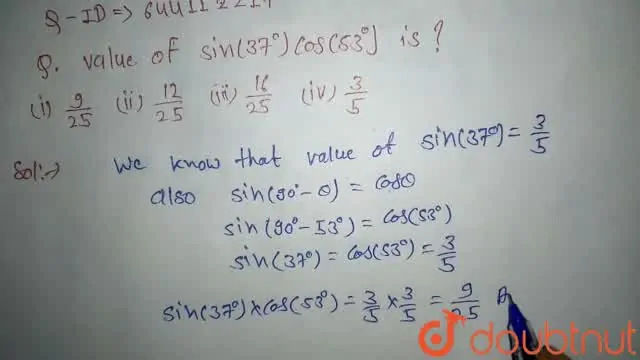 Q-ID => 644112214
Q. value of sin(37°) cos(53°) is ?
(i) 9/25 (ii) 12/25 (iii) 16/25 (iv) 3/5
Sol:-> We know that value of sin(37°) = 3/5
also sin(90°-θ) = cosθ
sin(90°-53°) = cos(53°)
sin(37°) = cos(53°) = 3/5
sin(37°) × cos(53°) = 3/5 × 3/5 = 9/25 A
doubtnut